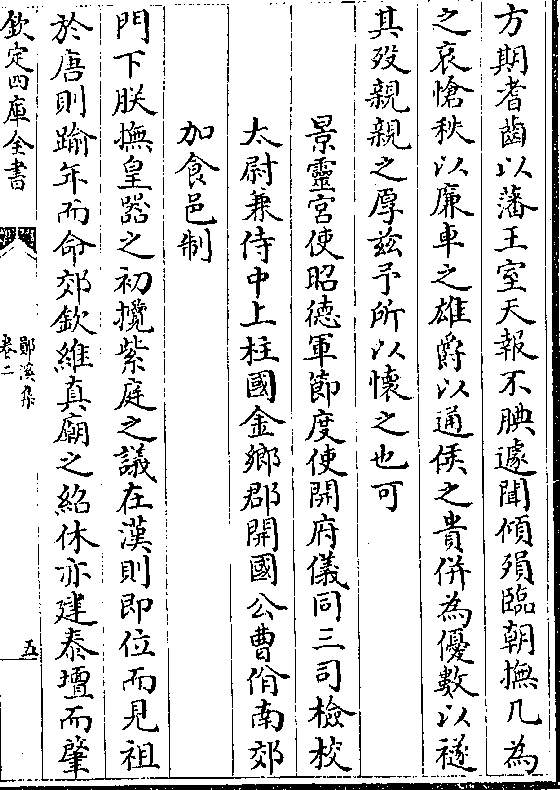 方期耆齒以藩王室天報不腆遽聞傾殞臨朝撫几為
之哀愴秩以廉車之雄爵以通侯之貴併為優數以襚
其歿親親之厚兹予所以懷之也可
景靈宮使昭德軍節度使開府儀同三司檢校
太尉兼侍中上柱國金鄉郡開國公曹佾南郊
加食邑制
門下朕撫皇器之初攬紫庭之議在漢則即位而見祖
於唐則踰年而命郊欽維真廟之紹休亦建泰壇而肇
欽定四庫全書
鄖溪集
卷二
五